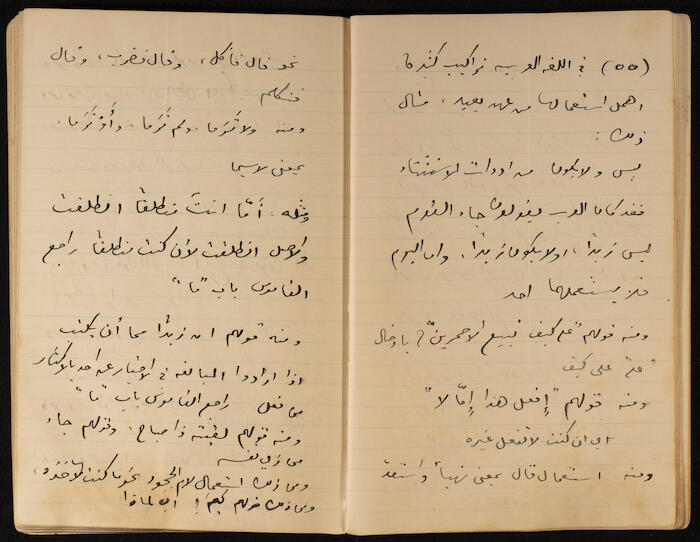 (٥٥) في اللغة العربية تراكيب كثيرة
اهمل استعمالها من عهد بعيد، مثال
ذلك:
ليس ولا يكون من ادوات الاستثناء
فقد كان العرب يقولون جاء القوم
ليس زيداً، ولا يكون زيداً. واما اليوم
فلا يستعملها احد
ومنه قولهم "على كيف تبيع الاحمرين"؟ بادخال
"على" على كيف
ومنه قولهم "إفعل هذا إمّا لا"
اي ان كنت لا تفعل غيره
ومنه استعمال قال بمعنى تهيأ واستعد
نحو قال فأكل، وقال فضرب، وقال
فتكلم
ومنه ولا تَرَما، ولم تَرَما، وأَوْ تَرَما،
بمعنى لاسيما
ومثله: أمّا انتَ منطلقاً انطلقت
والاصل انطلقت لأن كنت منطلقاً راجع
القاموس باب "ما"
ومنه قولهم ان زيداً مما أن يكتب
اذا ارادوا المبالغة في الاخبار عن احد بالاكثار
من فعل راجع القاموس باب "ما"
ومنه قولهم لقيته ذا صباح. وقولهم جاء
من ذي نفسه
ومن ذلك استعمال لام الجحود نحو ما كنت لآخذه،
ومن ذلك قولهم كيمَ؟ اي لماذا